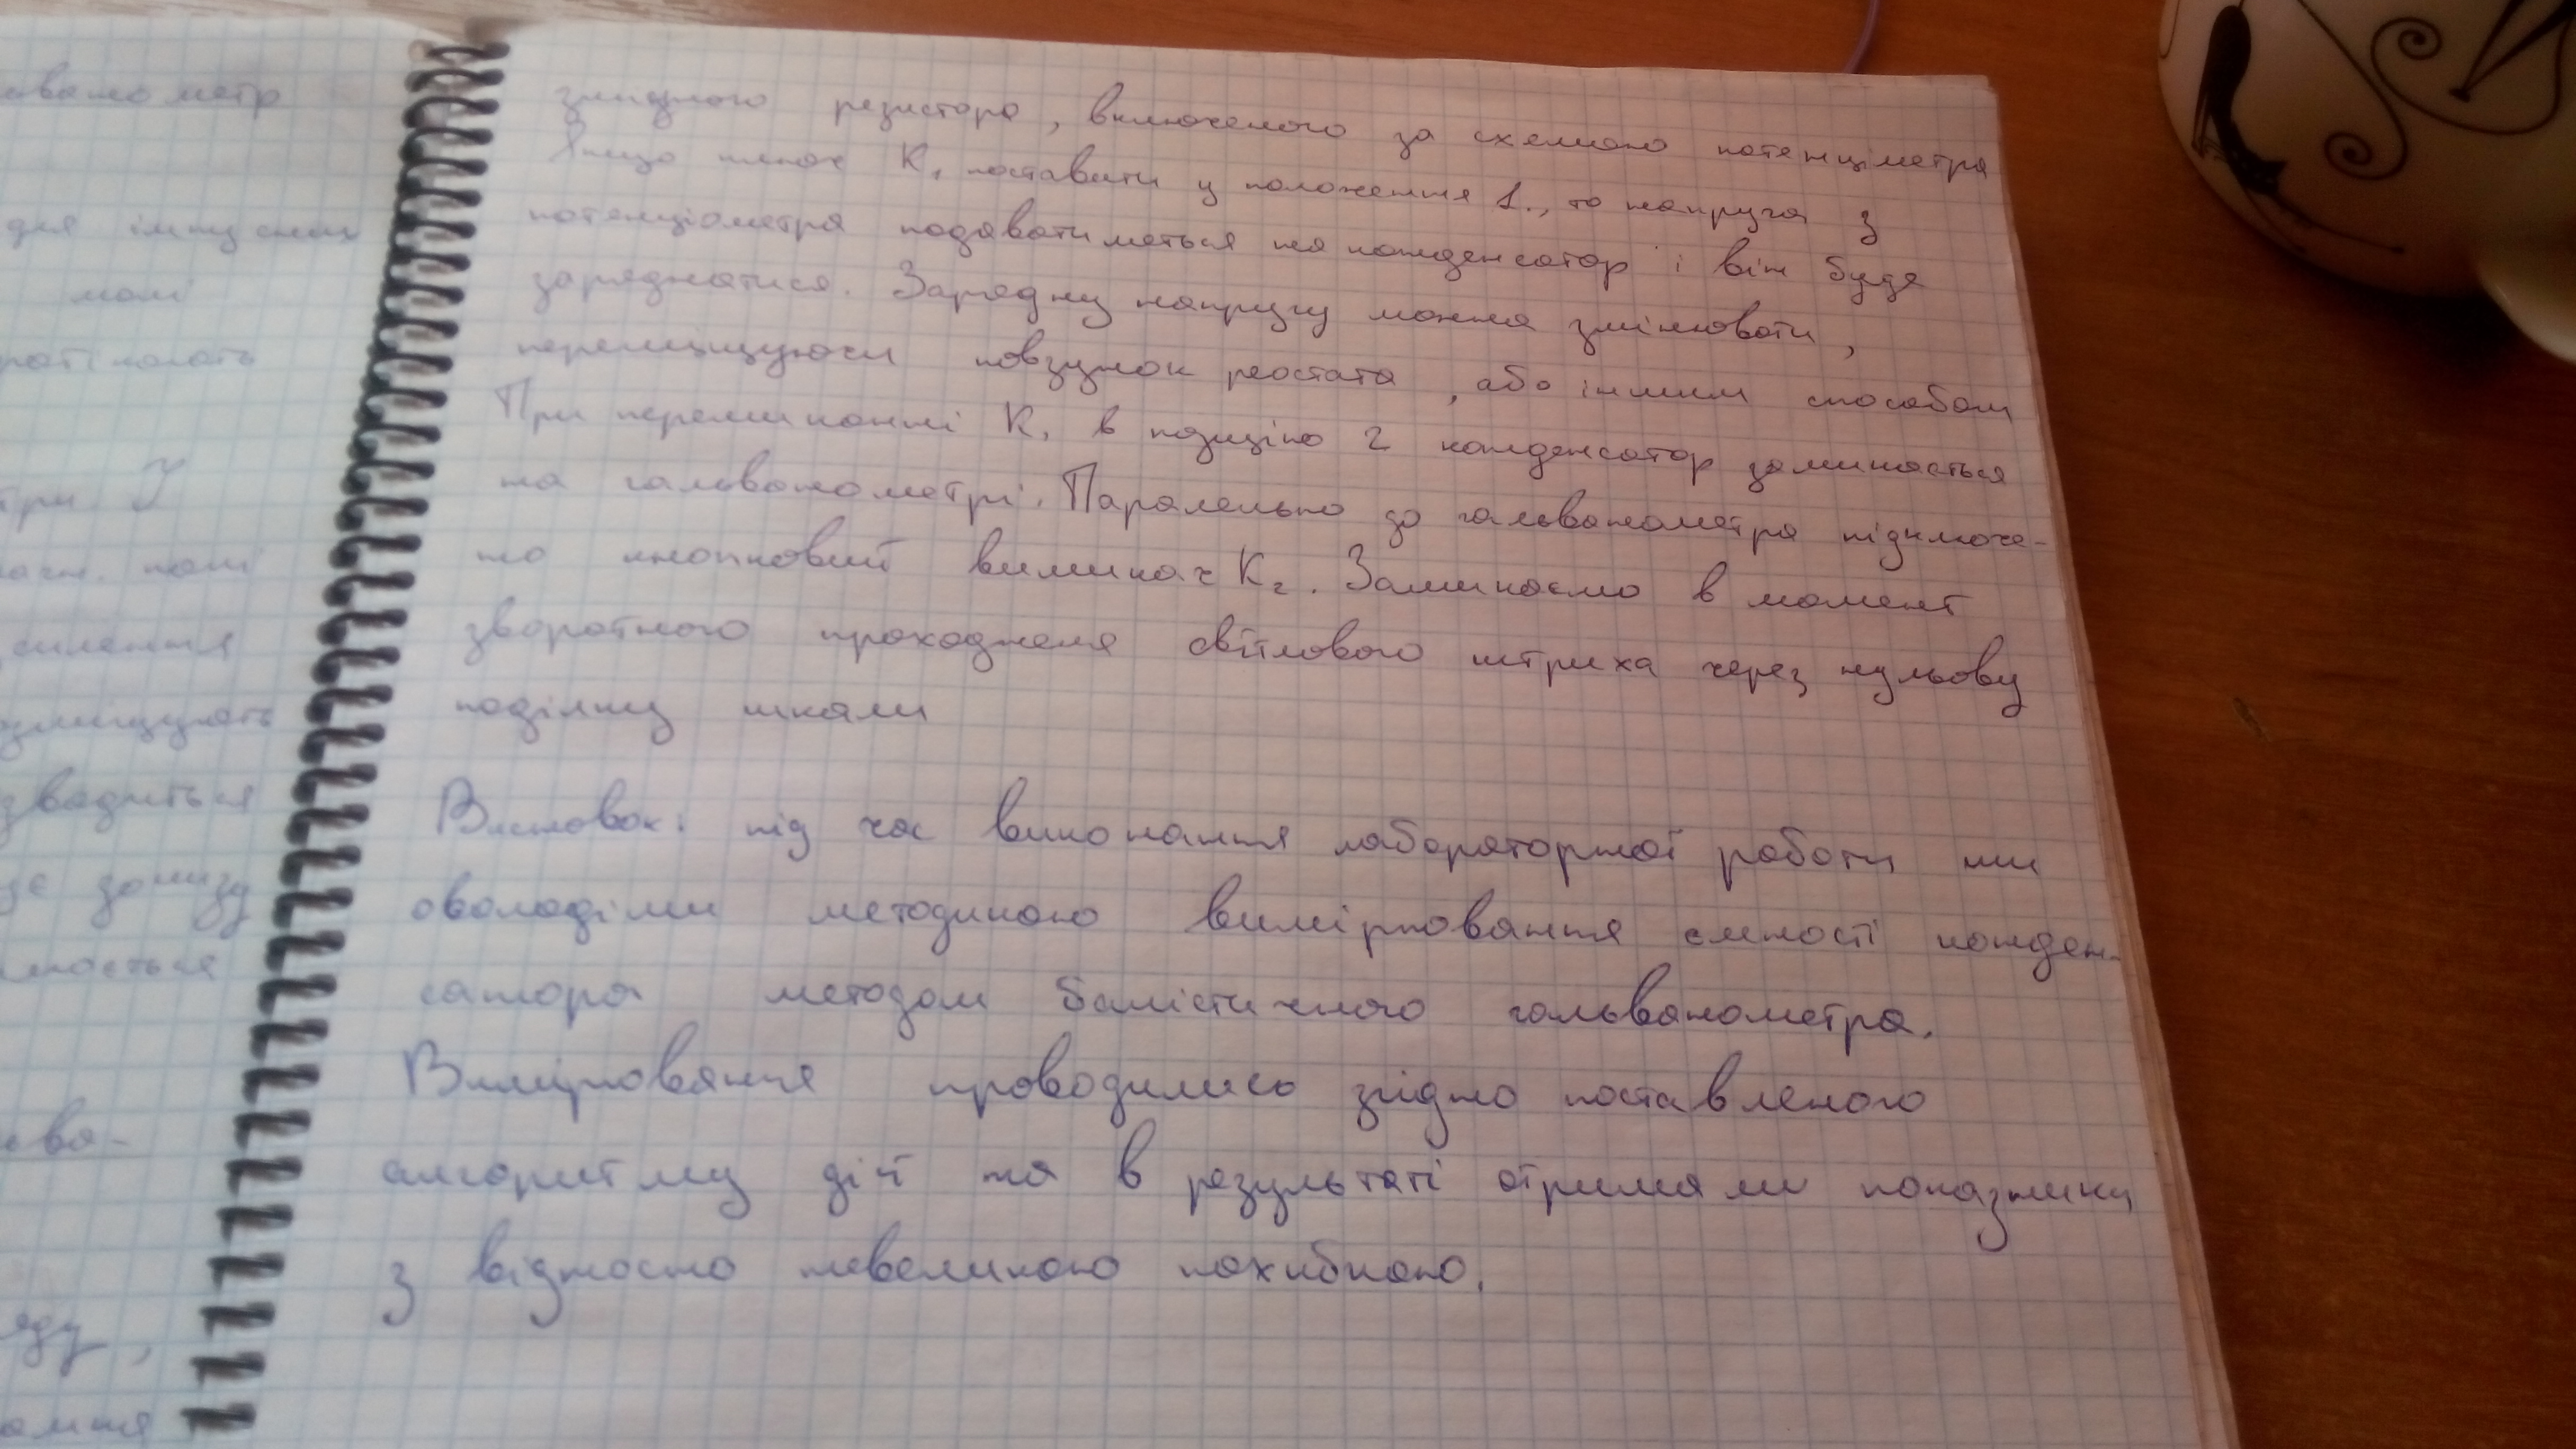 змінного резистора, включеного за схемою потенціметра
Якщо ключ К₁ поставити у положення 1., то напруга з
потенціометра подаватиметься на конденсатор і він буде
заряджатися. Зарядну напругу можна змінювати,
переміщуючи повзунок реостата, або іншим способом
При перемиканні К₁ в позицію 2 конденсатор замикається
на гальванометрі. Паралельно до гальванометра підключе-
но кнопковий вимикач К₂. Замикаємо в момент
зворотного проходження світлового штриха через нульову
поділку шкали
Висновок: під час виконання лабораторної роботи ми
оволоділи методикою вимірювання ємності конден-
сатора методом балістичного гальванометра.
Вимірювання проводились згідно поставленого
алгоритму дій та в результаті отримали показники
з відносно невеликою похибкою.